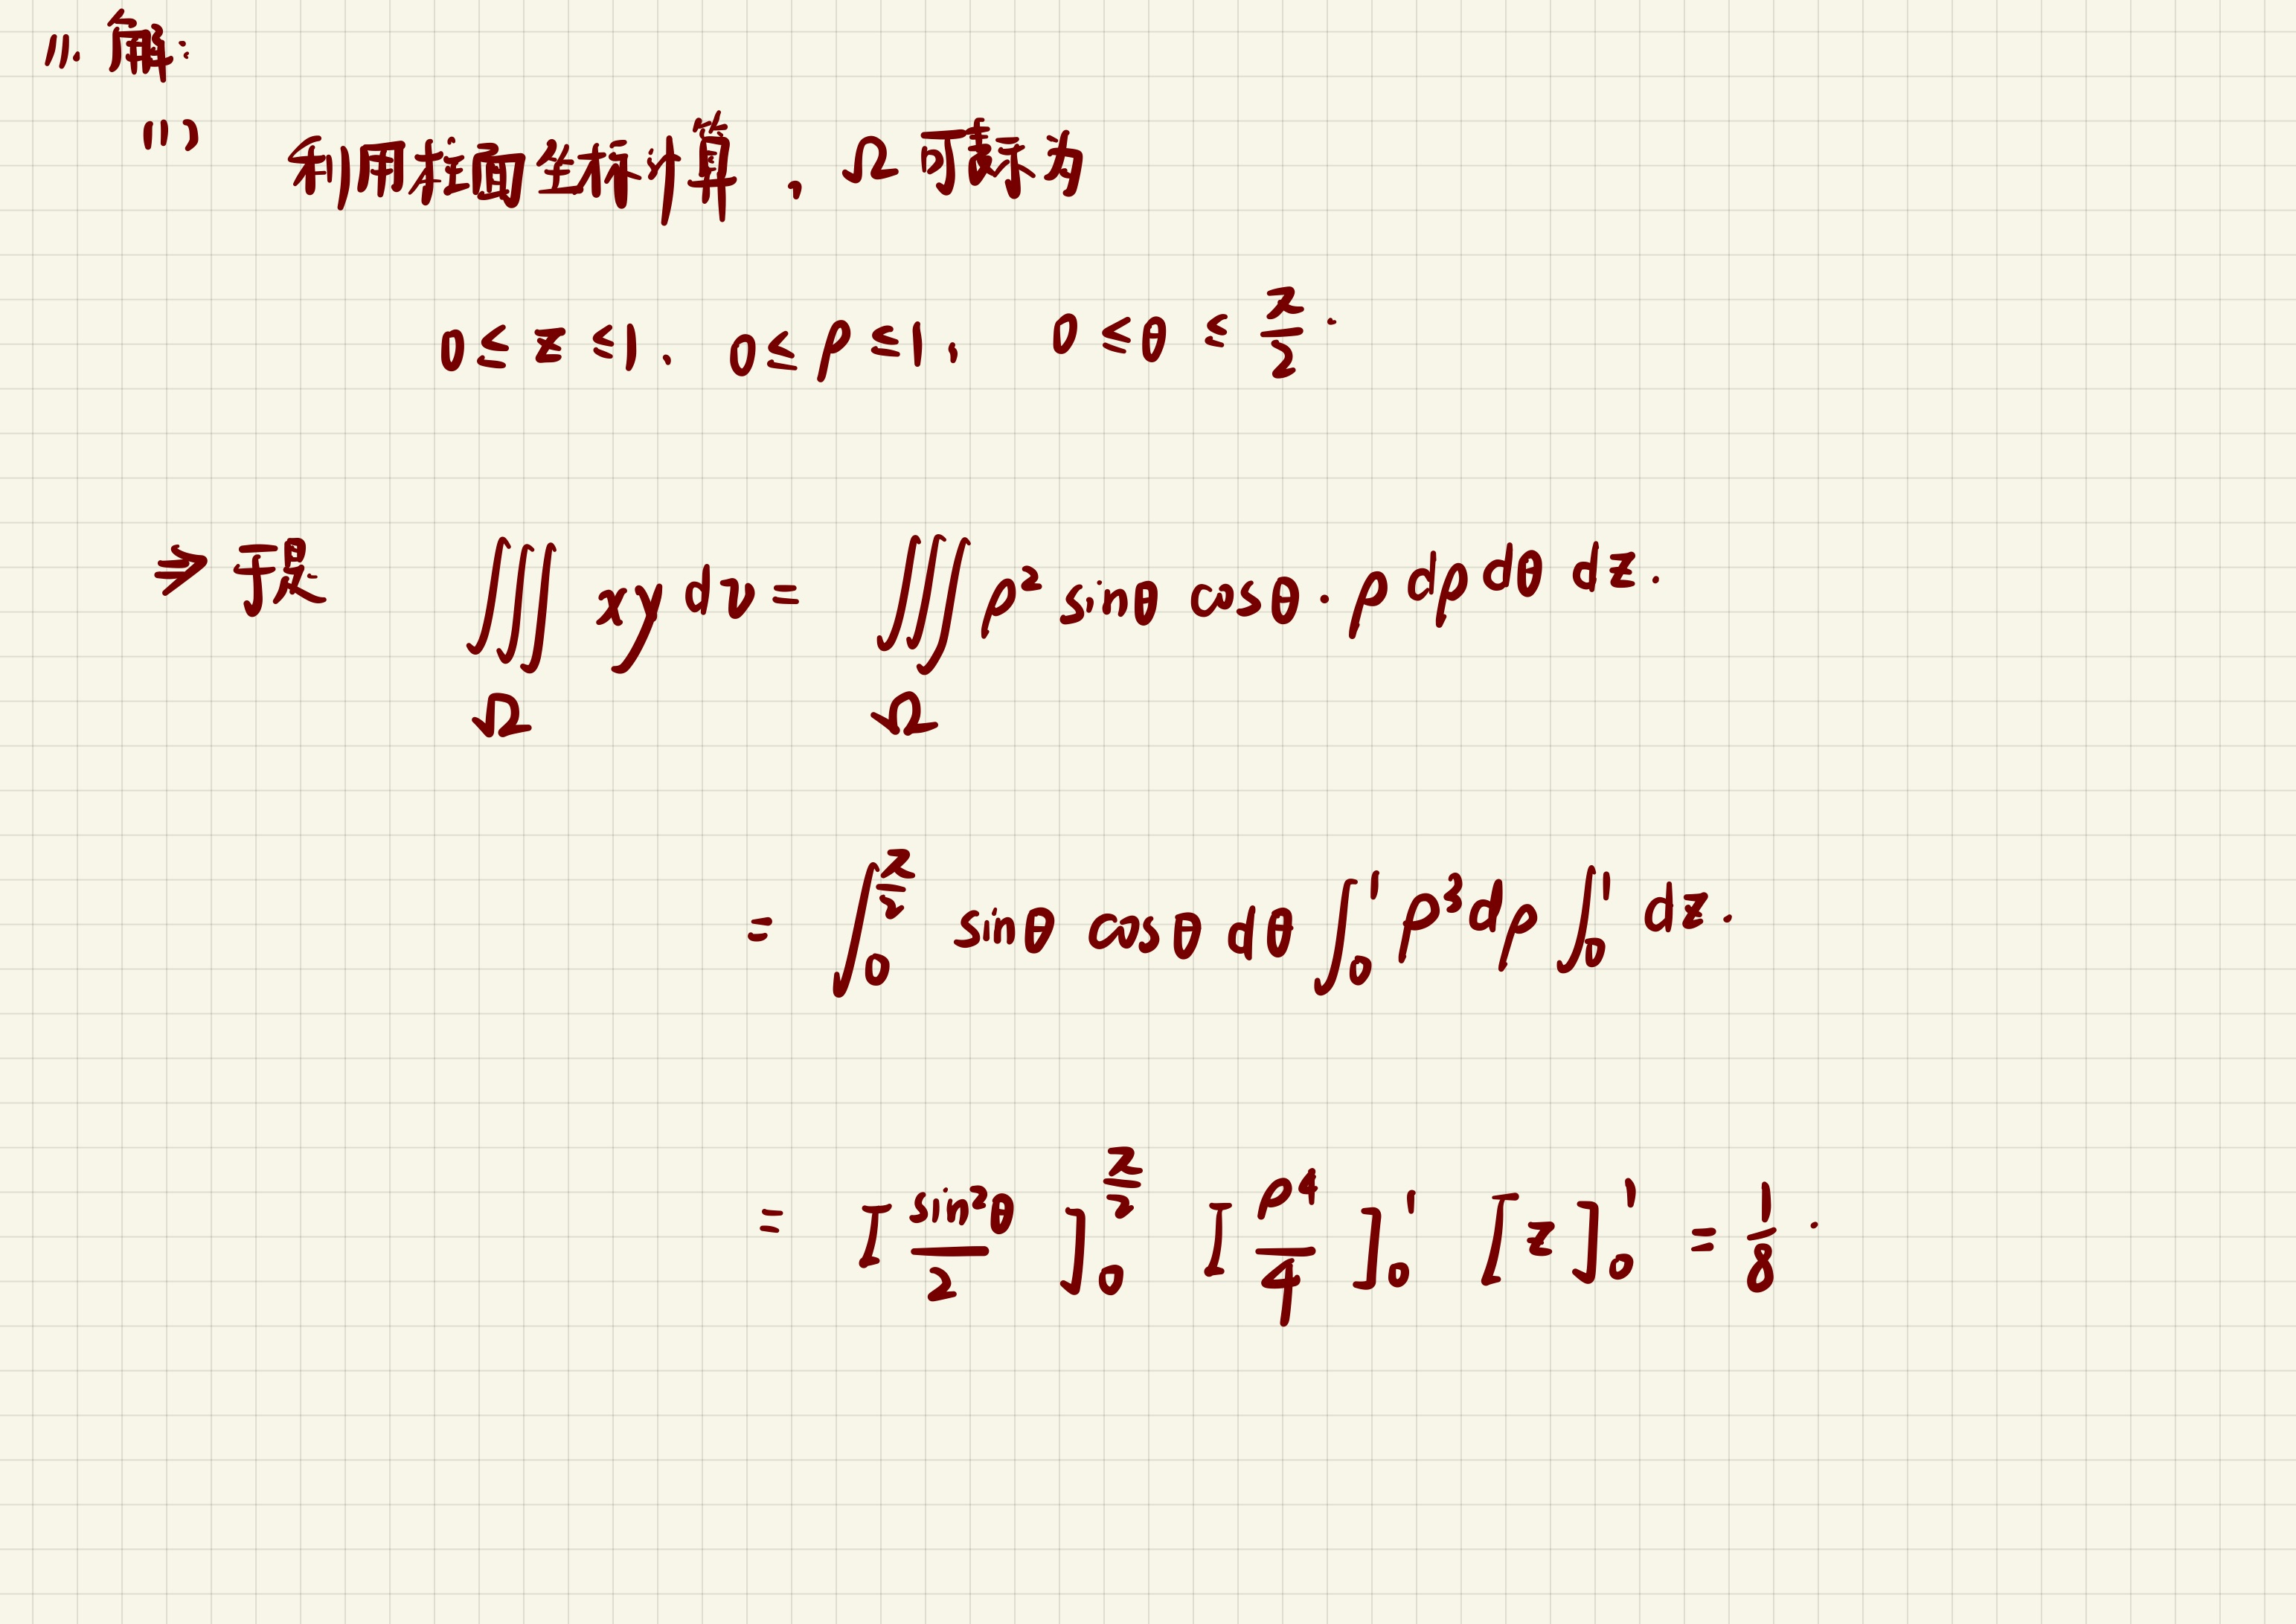 11. 解:
(1) 利用柱面坐标计算, Ω 可表示为
0 ≤ z ≤ 1, 0 ≤ ρ ≤ 1, 0 ≤ θ ≤ π/2.
⇒ 于是 ∭_Ω xy dv = ∭_Ω ρ² sinθ cosθ · ρ dρ dθ dz.
= ∫_0^{π/2} sinθ cosθ dθ ∫_0^1 ρ³ dρ ∫_0^1 dz.
= [sin²θ/2]_0^{π/2} [ρ⁴/4]_0^1 [z]_0^1 = 1/8.